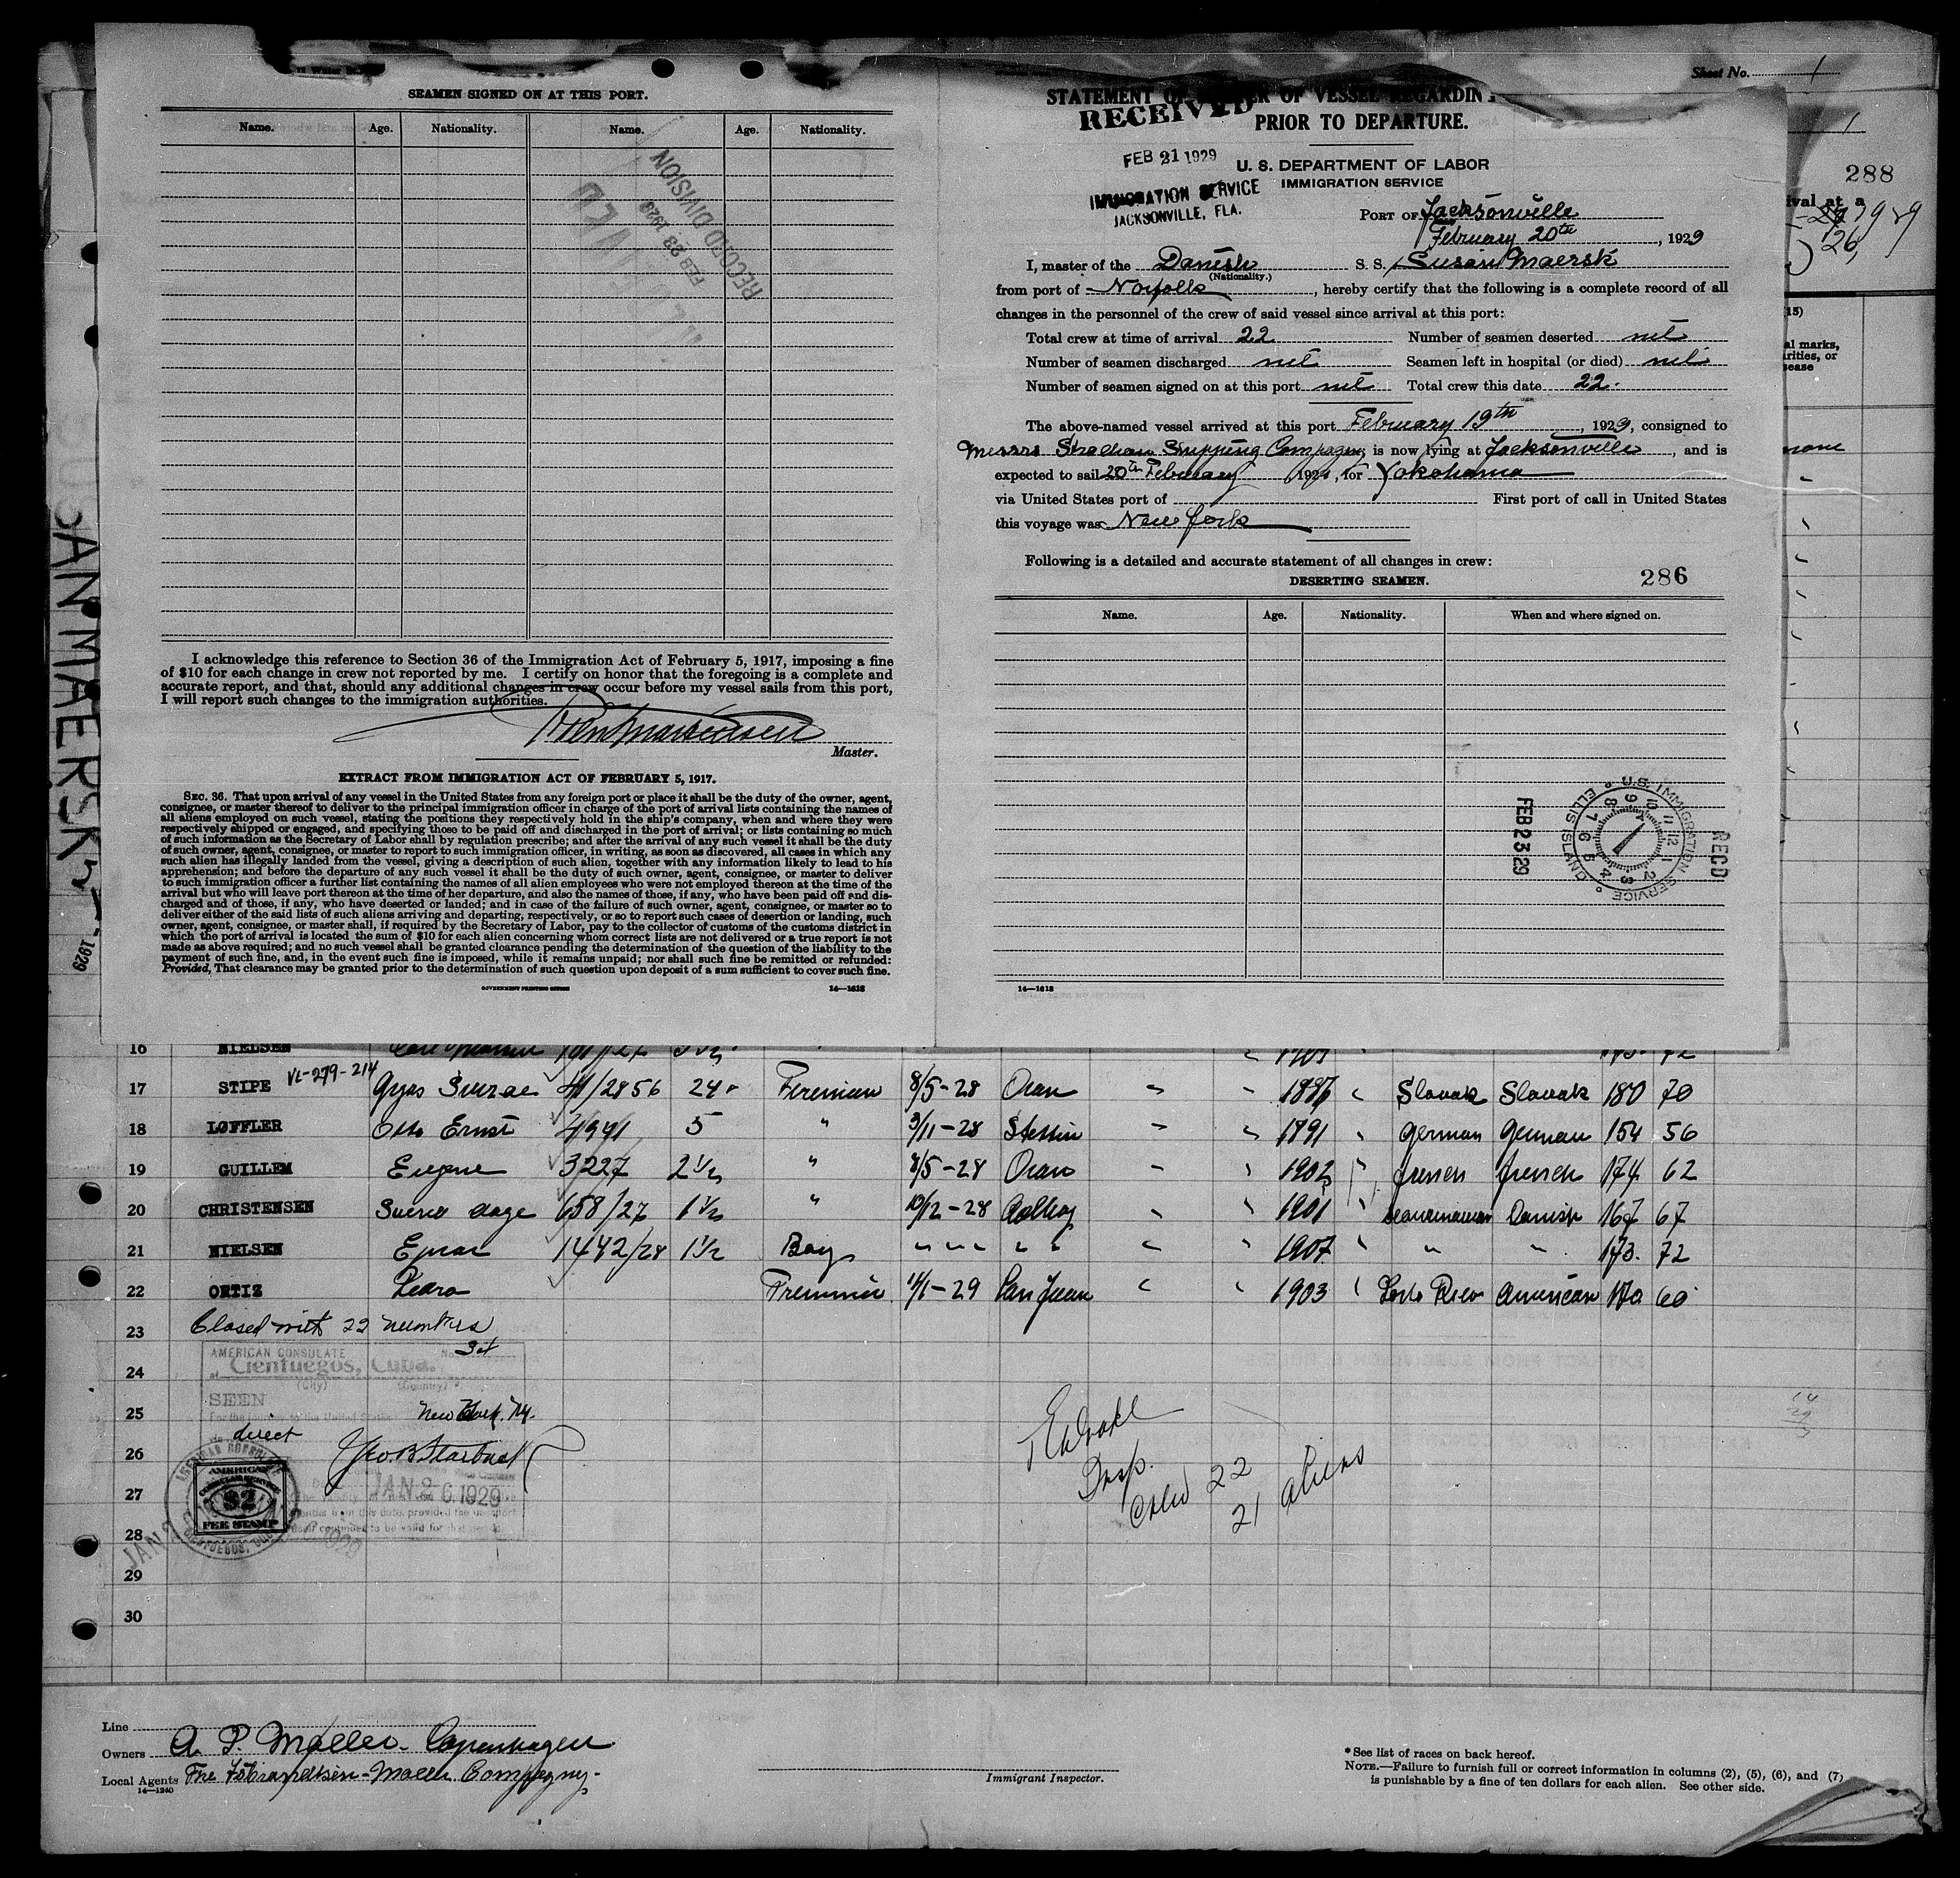 SEAMEN SIGNED ON AT THIS PORT.
Name. Age. Nationality. Name. Age. Nationality.
RECORD DIVISION
FEB 23 1929
I acknowledge this reference to Section 36 of the Immigration Act of February 5, 1917, imposing a fine
of $10 for each change in crew not reported by me. I certify on honor that the foregoing is a complete and
accurate report, and that, should any additional changes in crew occur before my vessel sails from this port,
I will report such changes to the immigration authorities.
Master.
EXTRACT FROM IMMIGRATION ACT OF FEBRUARY 5, 1917.
SEC. 36. That upon arrival of any vessel in the United States from any foreign port or place it shall be the duty of the owner, agent,
consignee, or master thereof to deliver to the principal immigration officer in charge of the port of arrival lists containing the names of
all aliens employed on such vessel, stating the positions they respectively hold in the ship's company, when and where they were
respectively shipped or engaged, and specifying those to be paid off and discharged in the port of arrival; or lists containing so much
of such information as the Secretary of Labor shall by regulation prescribe; and after the arrival of any such vessel it shall be the duty
of such owner, agent, consignee, or master to report to such immigration officer, in writing, as soon as discovered, all cases in which any
such alien has illegally landed from the vessel, giving a description of such alien, together with any information likely to lead to his
apprehension; and before the departure of any such vessel it shall be the duty of such owner, agent, consignee, or master to deliver
to such immigration officer a further list containing the names of all alien employees who were not employed thereon at the time of the
arrival but who will leave port thereon at the time of her departure, and also the names of those, if any, who have been paid off and dis-
charged and of those, if any, who have deserted or landed; and in case of the failure of such owner, agent, consignee, or master so to
deliver either of the said lists of such aliens arriving and departing, respectively, or so to report such cases of desertion or landing, such
owner, agent, consignee, or master shall, if required by the Secretary of Labor, pay to the collector of customs of the customs district in
which the port of arrival is located the sum of $10 for each alien concerning whom correct lists are not delivered or a true report is not
made as above required; and no such vessel shall be granted clearance pending the determination of the question of the liability to the
payment of such fine, and, in the event such fine is imposed, while it remains unpaid; nor shall such fine be remitted or refunded:
Provided, That clearance may be granted prior to the determination of such question upon deposit of a sum sufficient to cover such fine.
GOVERNMENT PRINTING OFFICE 14—1618
Sheet No. 1
STATEMENT OF MASTER OF VESSEL REGARDING
PRIOR TO DEPARTURE.
RECEIVED
FEB 21 1929
IMMIGRATION SERVICE
JACKSONVILLE, FLA.
U. S. DEPARTMENT OF LABOR
IMMIGRATION SERVICE
PORT OF Jacksonville
February 20th, 1929
I, master of the Danish S. S. Susan Maersk
(Nationality.)
from port of Norfolk, hereby certify that the following is a complete record of all
changes in the personnel of the crew of said vessel since arrival at this port:
Total crew at time of arrival 22 Number of seamen deserted nil
Number of seamen discharged nil Seamen left in hospital (or died) nil
Number of seamen signed on at this port nil Total crew this date 22.
The above-named vessel arrived at this port February 19th, 1929, consigned to
Messrs Strachan Shipping Compagny, is now lying at Jacksonville, and is
expected to sail 20th February 192, for Yokohama
via United States port of First port of call in United States
this voyage was New York
Following is a detailed and accurate statement of all changes in crew:
DESERTING SEAMEN. 286
Name. Age. Nationality. When and where signed on.
U.S. IMMIGRATION SERVICE ELLIS ISLAND
REC'D
FEB 23 29
14—1618
288
1
(15)
none
SUSAN MAERSK
1929
16 NIELSEN
17 STIPE VL-279-214 41/2856 24 Fireman 8/5-28 Oran " " 1886 " Slovak Slovak 180 70
18 LØFFLER Otto Ernst 4941 5 " 3/11-28 Stettin " " 1891 " German German 154 56
19 GUILLEM Eugene 3227 2 1/2 " 8/5-28 Oran " " 1902 " french french 174 62
20 CHRISTENSEN Svend Aage 658/27 1 1/2 " 10/12-28 Aalborg " " 1901 " Scandinavian Danish 167 67
21 NIELSEN Ejnar 1442/28 1 1/2 Boy " " " " " " 1907 " " " 173 72
22 ORTIZ Pedro Fireman 11/1-29 San Juan " " 1903 " Porto Rico American 170 60
23 Closed with 22 members
24
25
26
27
28
29
30
AMERICAN CONSULATE No. 34
at Cienfuegos, Cuba.
(City) (Country)
SEEN
For the journey to the United States
New York, NY.
direct
Geo. B. Starbuck
JAN 26 1929
AMERICAN
CONSULAR SERVICE
$2
FEE STAMP
Insp.
22
21 aliens
Line
Owners A. P. Møller. Copenhagen
Local Agents
14—1240
Immigrant Inspector.
* See list of races on back hereof.
NOTE.—Failure to furnish full or correct information in columns (2), (5), (6), and (7)
is punishable by a fine of ten dollars for each alien. See other side.